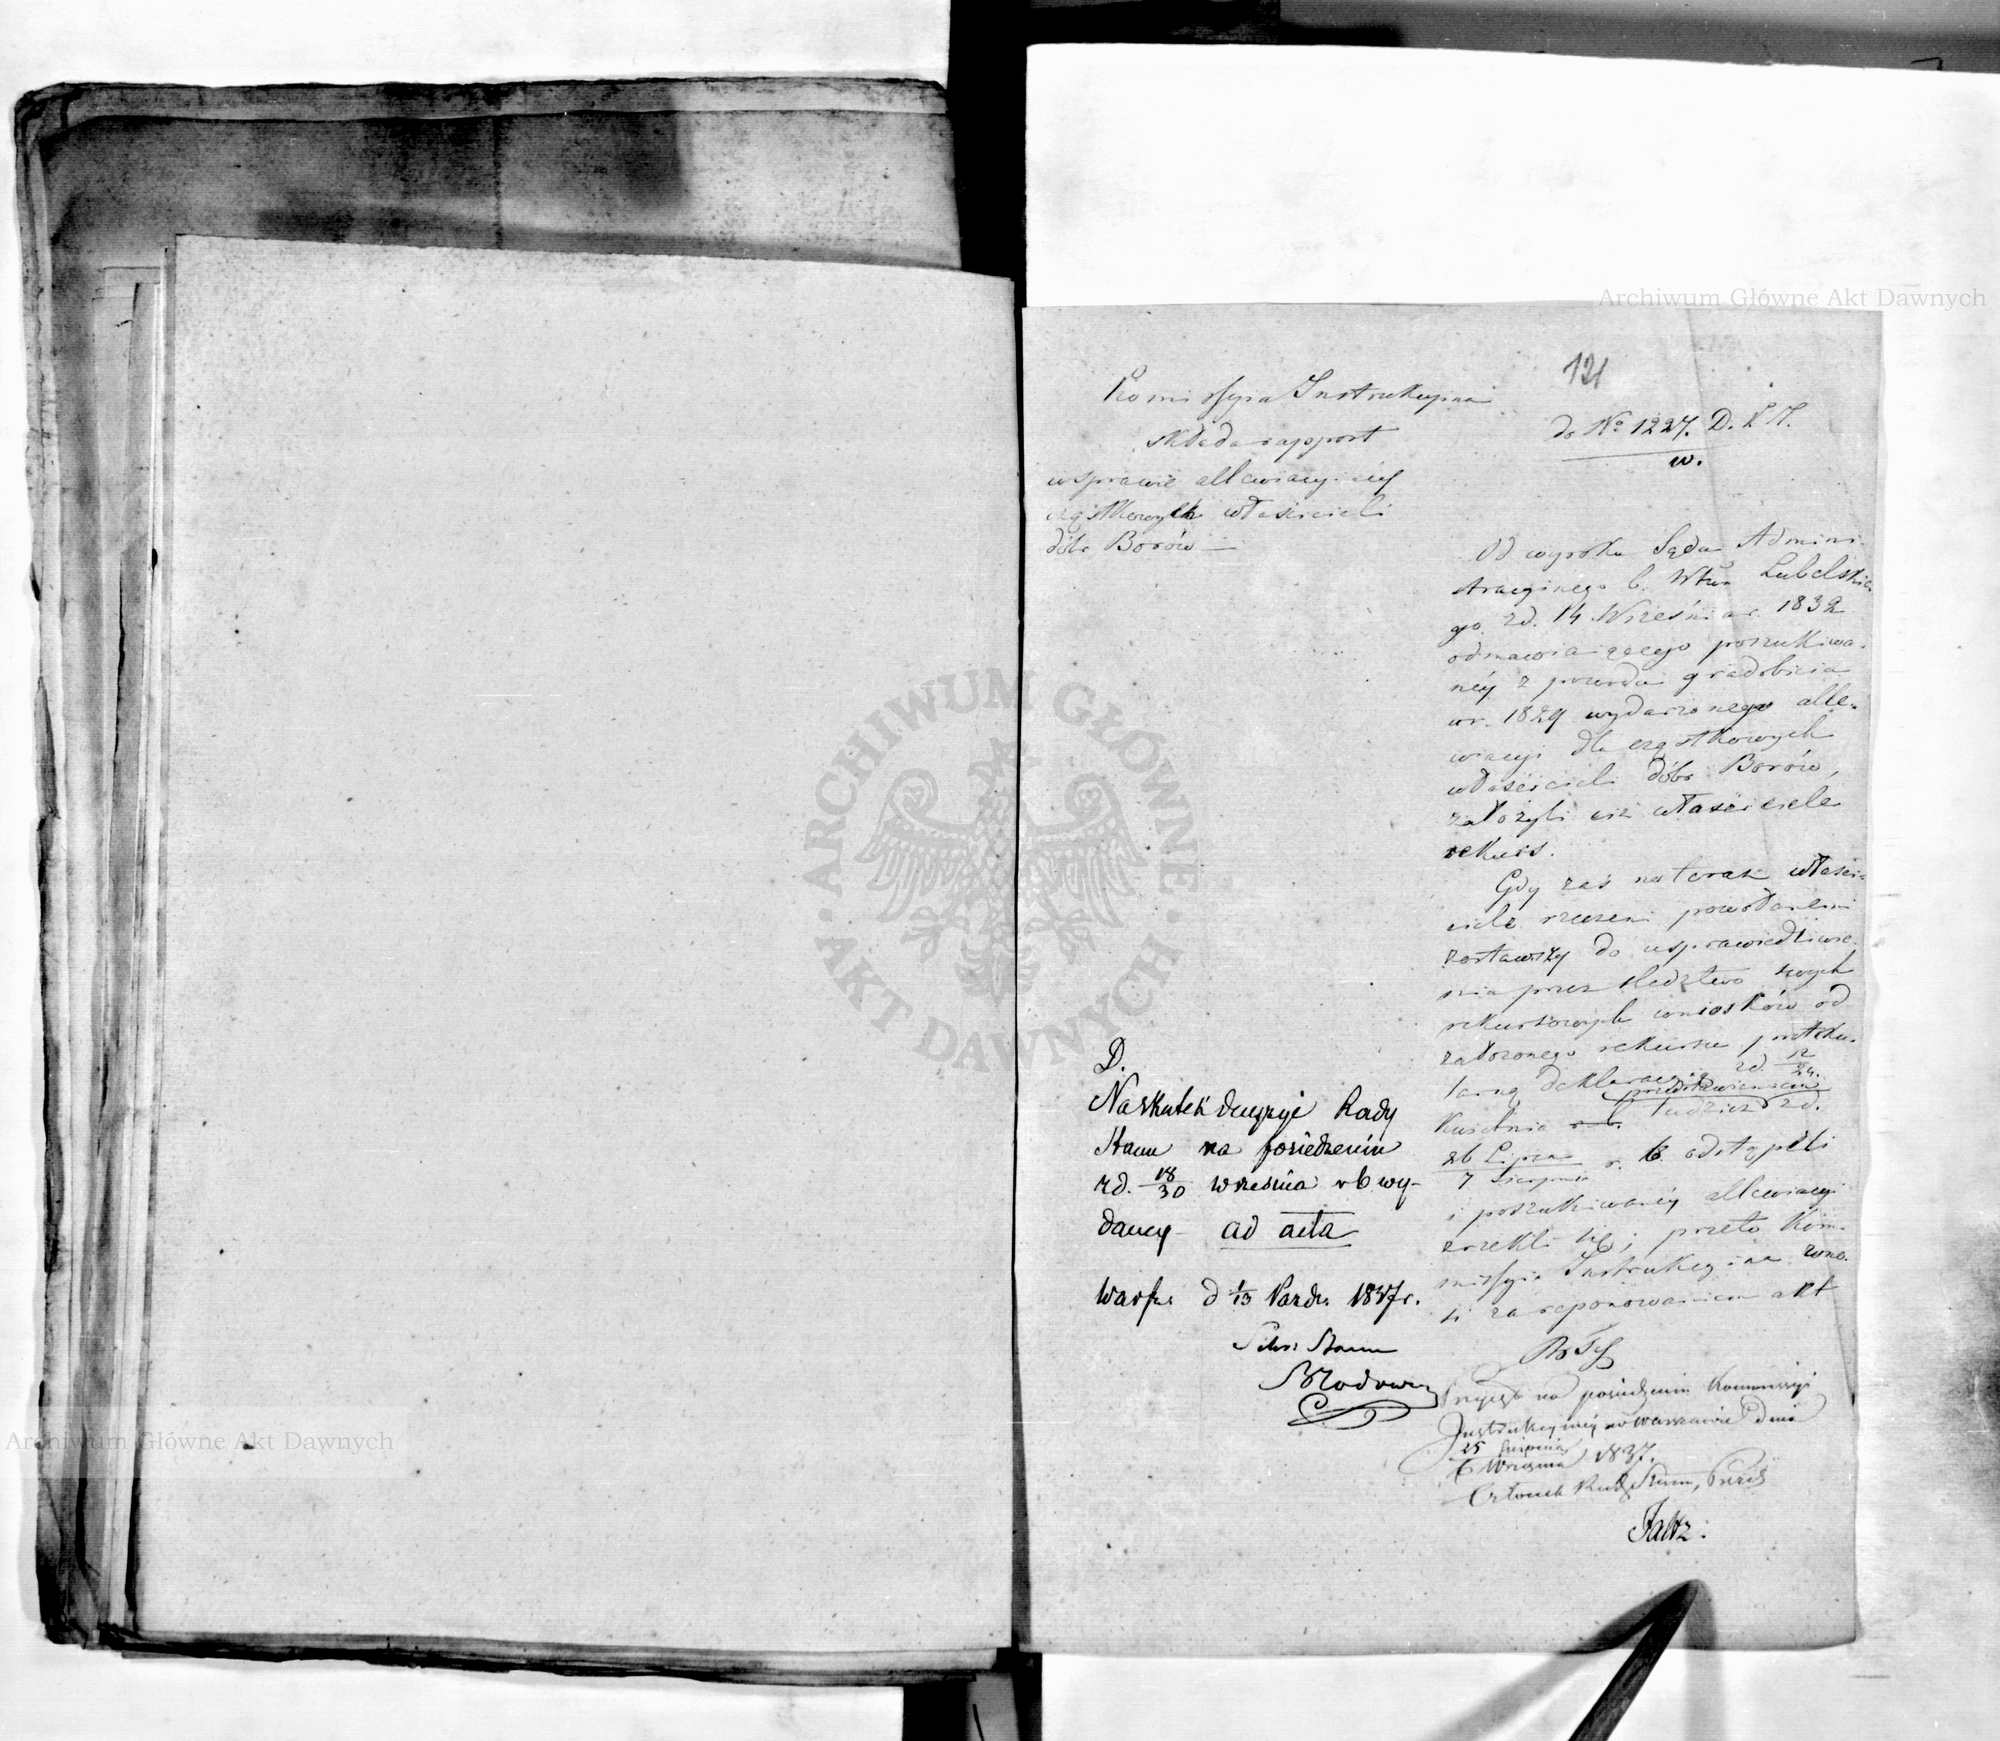 121
Kommissyia Instrukcyina
składa rapport
w sprawie allewiacyinéy
cząstkowych właścicieli
dóbr Borów —
do No 1227. D. K. I.
w.
Od wyroku Sądu Admini-
stracyinego b. Wtwa Lubelskie-
go zd. 14 Września r. 1832
odmawiaiącego poszukiwa-
néy z powodu gradobicia
w r. 1829 wydarzonego alle-
wiacyi dla cząstkowych
właścicieli dóbr Borów,
założyli ciż właściciele
rekurs.
Gdy zaś na teraz właści-
ciele rzeczeni powołanemi
zostawszy do usprawiedliwie-
nia przez śledztwo swych
rekursowych wniosków od
założonego rekursu protoku-
larną deklaracyią zd. 12/24.
Kwietnia r. b. tudzież przedstawieniem zd.
26 Lipca / 7 Sierpnia r. b. odstąpili
i poszukiwanéy allewiacyi
zrzekli się; przeto Kom-
missyia Instrukcyina wno-
si za reponowaniem akt
Przyięto na posiedzeniu Kommissyi
Instrukcyinéy w Warszawie dnia
25 Sierpnia / 6 Września 1837.
Członek Rady Stanu, Prezes
Faltz.
D.
Na skutek decyzyi Rady
Stanu na posiedzeniu
zd. 18/30 września rb wy-
daney ad acta
Warsz. d 1/13 Pazdz. 1837 r.
Sekr: Stanu
Archiwum Główne Akt Dawnych
ARCHIWUM GŁÓWNE
AKT DAWNYCH
Archiwum Główne Akt Dawnych